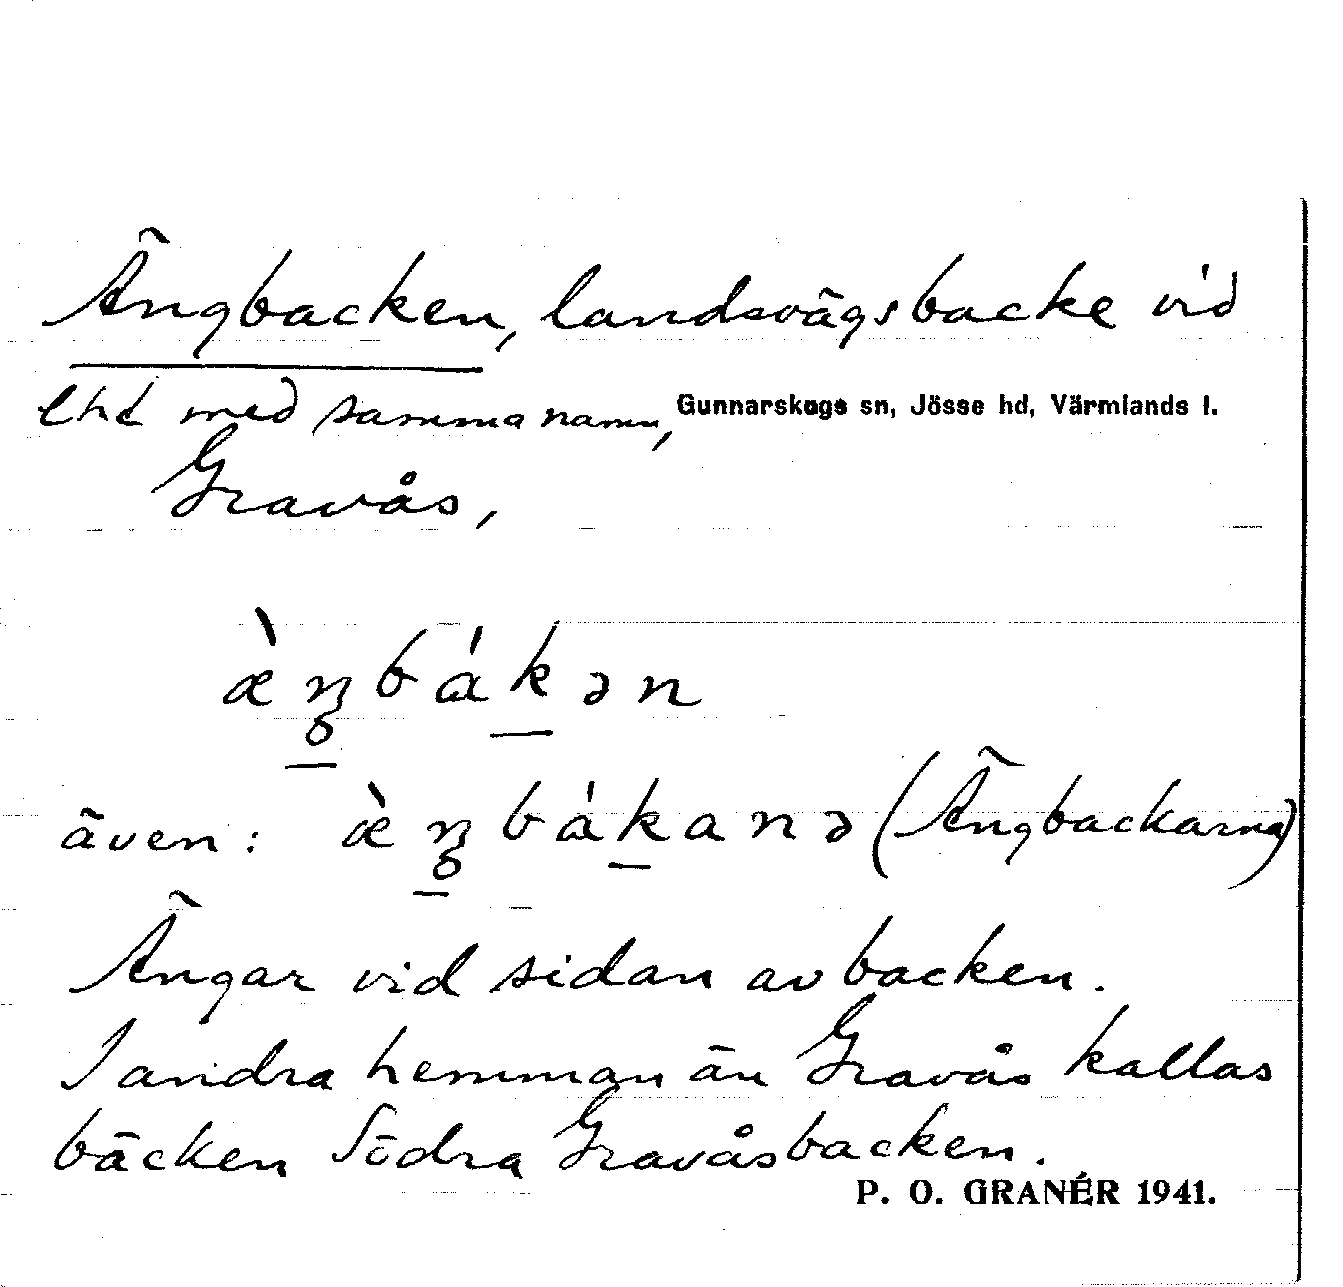 Ängbacken, landsvägsbacke vid
med samma namn, Gunnarskogs sn, Jösse hd, Värmlands l.
Gravås,
æ̀ŋbákən
även: æ̀ŋbákanə (Ängbackarna)
Ängar vid sidan av backen.
I andra hemman än Gravås kallas
bäcken Södra Gravåsbacken.
P. O. GRANÉR 1941.